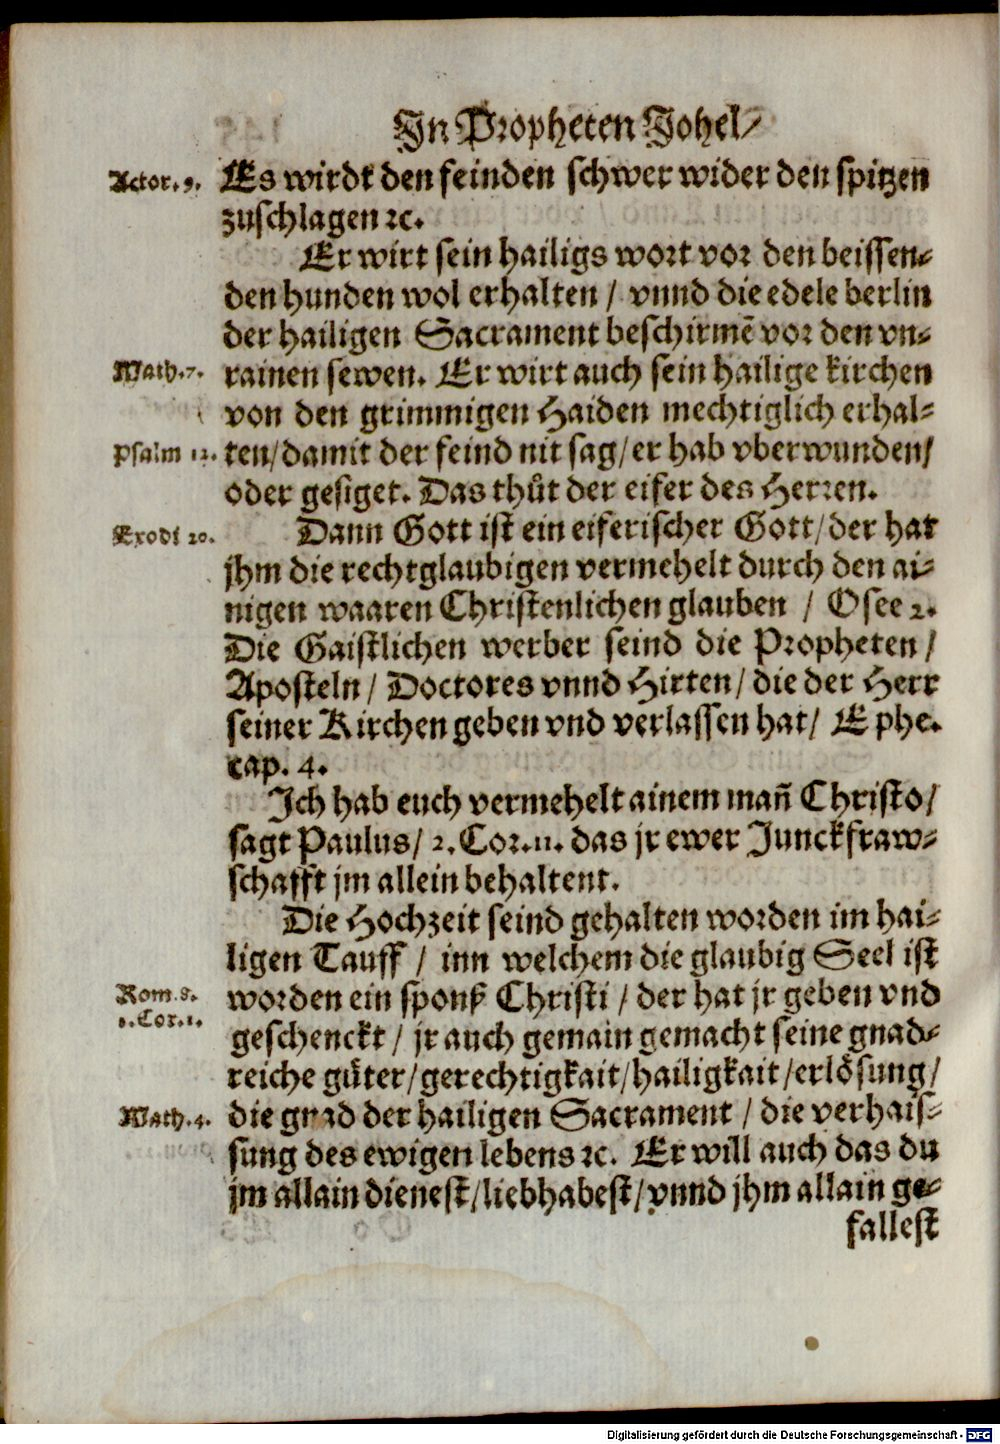 In Propheten Johel/
Actor. 9. Es wirdt den feinden schwer wider den spitzen
zuschlagen ꝛc.
Er wirt sein hailigs wort vor den beissen⸗
den hunden wol erhalten / vnnd die edele berlin
der hailigen Sacrament beschirmē vor den vn⸗
Math. 7. rainen sewen. Er wirt auch sein hailige kirchen
von den grimmigen Haiden mechtiglich erhal⸗
Psalm 12. ten/damit der feind nit sag/er hab vberwunden/
oder gesiget. Das thůt der eifer des Herren.
Exodi 20. Dann Gott ist ein eiferischer Gott/der hat
jhm die rechtglaubigen vermehelt durch den ai⸗
nigen waaren Christenlichen glauben / Osee 2.
Die Gaistlichen werber seind die Propheten /
Aposteln / Doctores vnnd Hirten/ die der Herr
seiner Kirchen geben vnd verlassen hat/ Ephe.
cap. 4.
Ich hab euch vermehelt ainem mañ Christo/
sagt Paulus/ 2. Cor. 11. das jr ewer Junckfraw⸗
schafft jm allein behaltent.
Die Hochzeit seind gehalten worden im hai⸗
ligen Tauff / inn welchem die glaubig Seel ist
Rom. 8. worden ein sponß Christi / der hat jr geben vnd
1. Cor. 1. geschenckt / jr auch gemain gemacht seine gnad⸗
reiche gůter/gerechtigkait/hailigkait/erlösung/
Math. 4. die gnad der hailigen Sacrament / die verhais⸗
sung des ewigen lebens ꝛc. Er will auch das du
jm allain dienest/liebhabest/vnnd jhm allain ge⸗
fallest
Digitalisierung gefördert durch die Deutsche Forschungsgemeinschaft - DFG